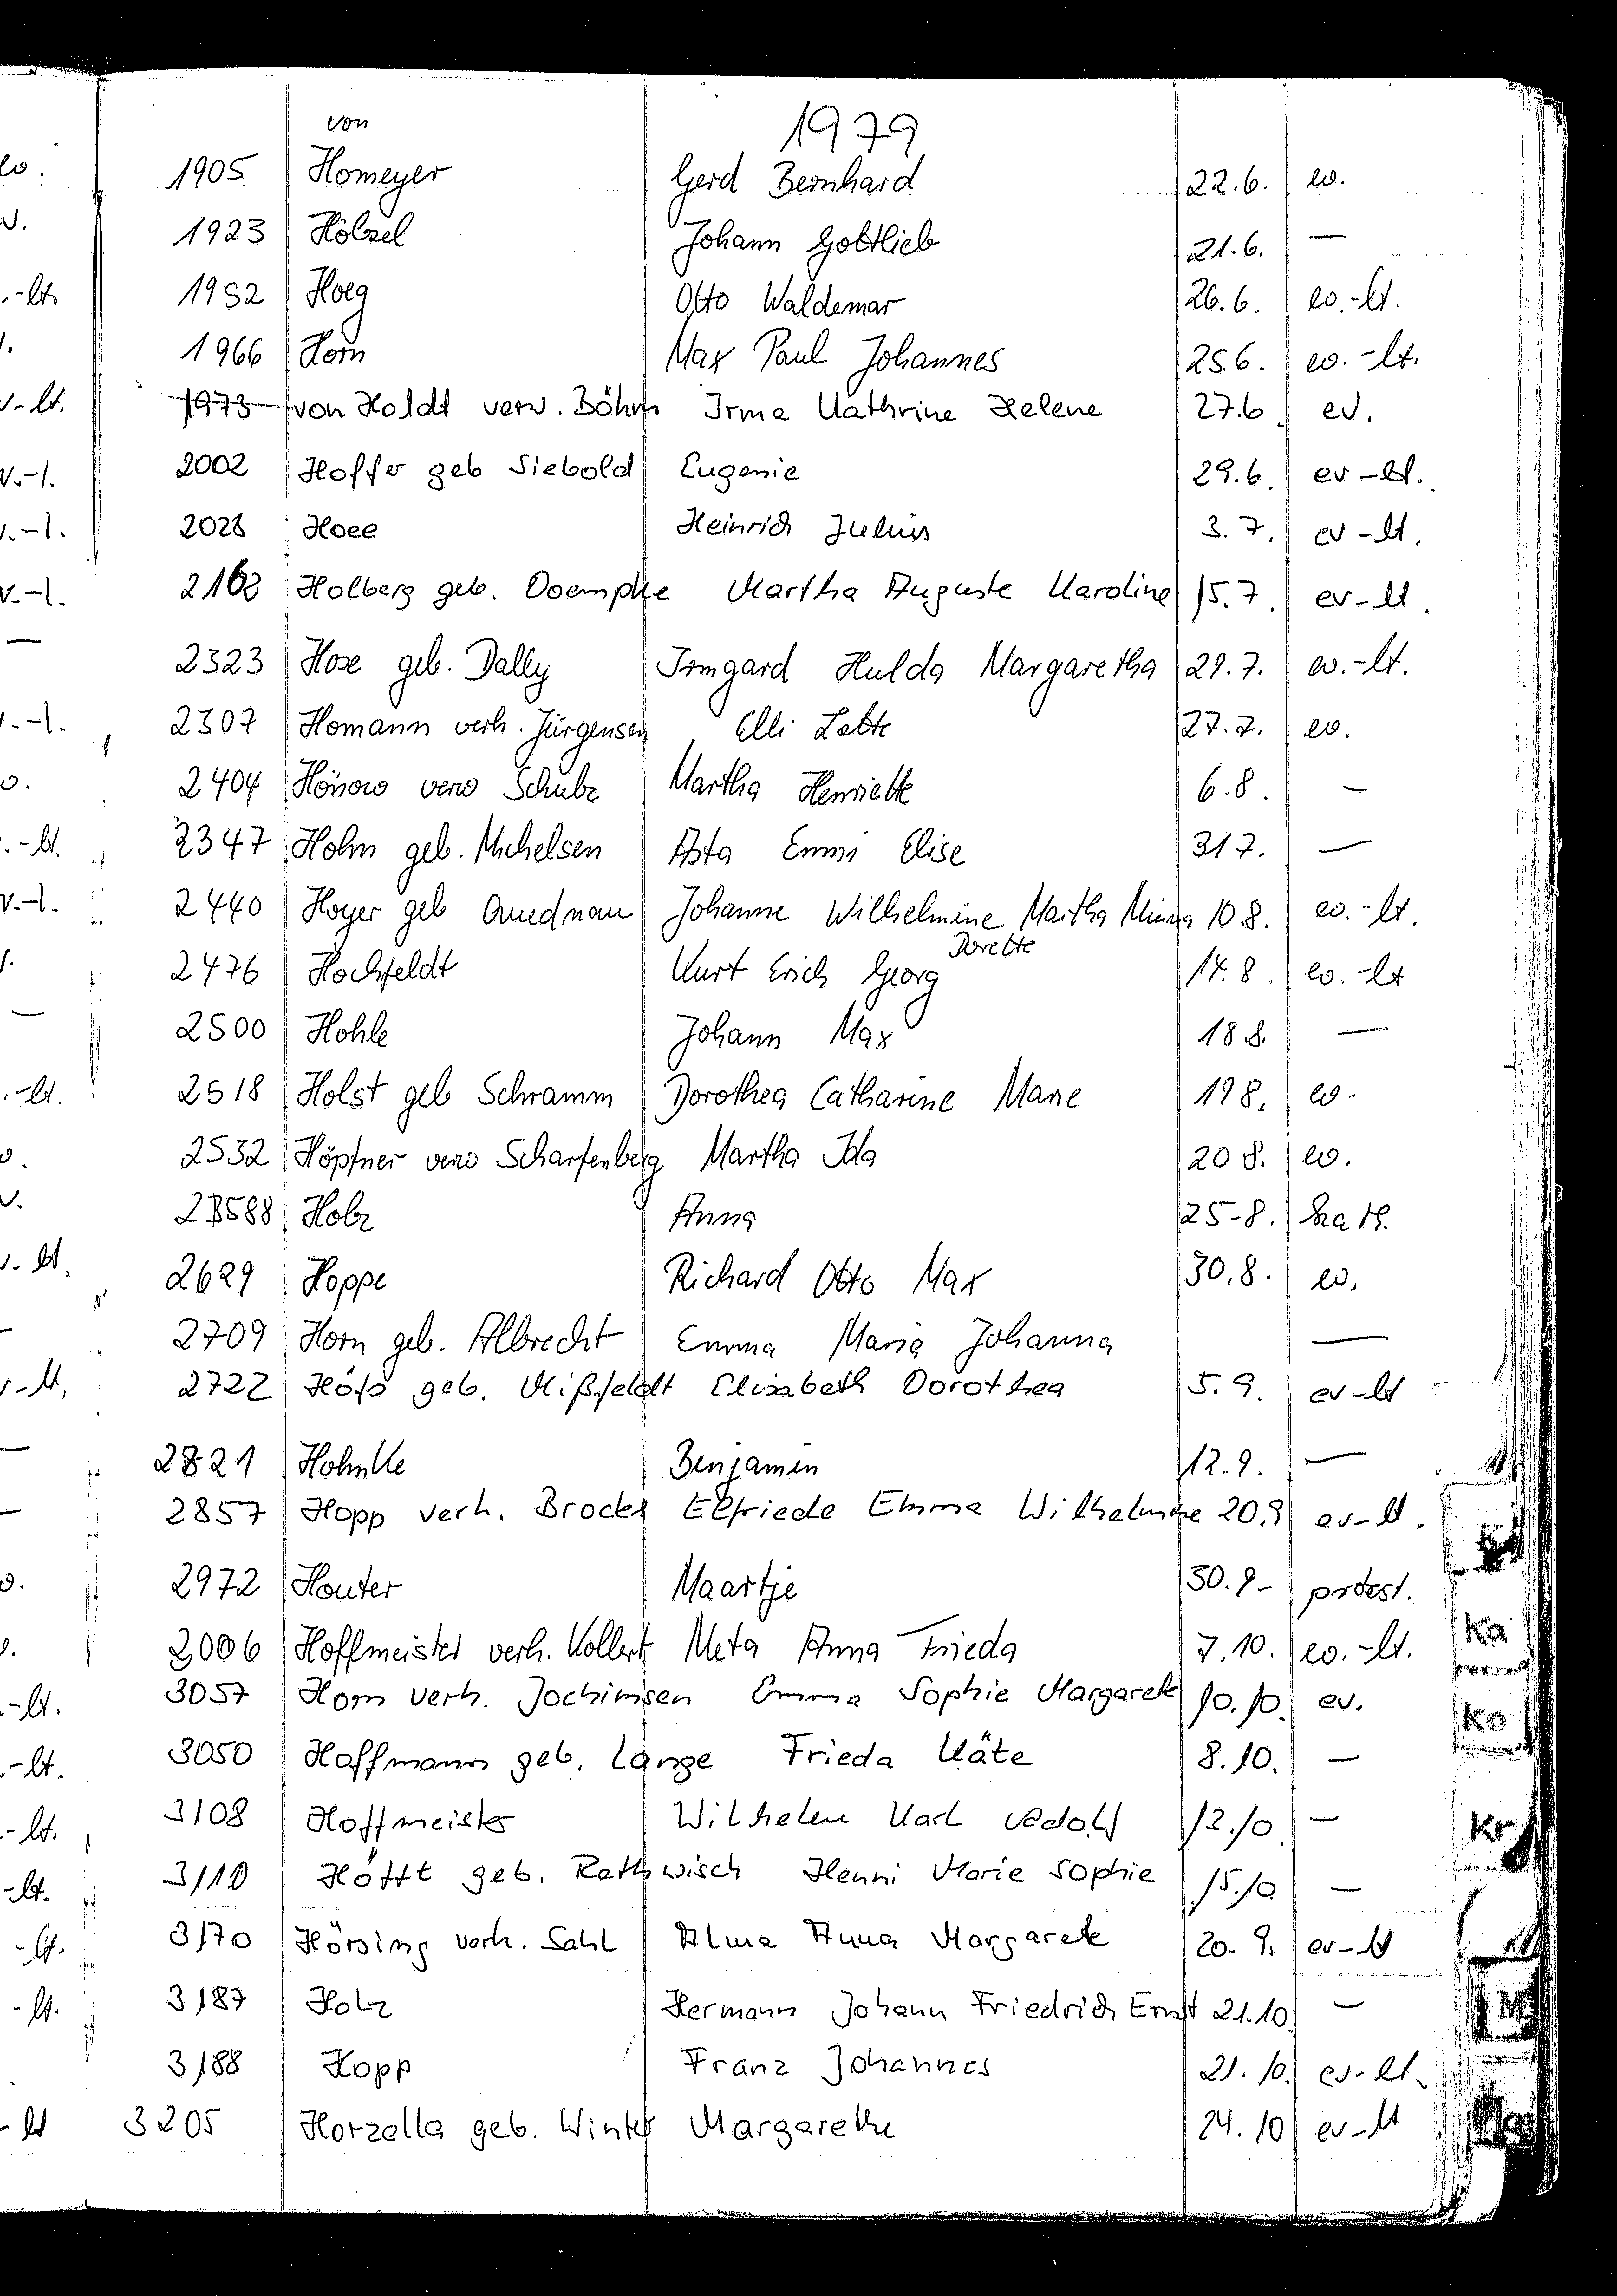 1979
von
1905 Homeyer Gerd Bernhard 22.6. ev.
1923 Hölzel Johann Gottlieb 21.6. —
1952 Hoeg Otto Waldemar 26.6. ev.-lt.
1966 Horn Max Paul Johannes 25.6. ev.-lt.
1973 von Holdt verw. Böhm Irma Kathrine Helene 27.6. ev.
2002 Hoffer geb Siebold Eugenie 29.6. ev-lt.
2028 Hoee Heinrich Julius 3.7. ev-lt.
2162 Holberg geb. Doempke Martha Auguste Karoline 15.7. ev-lt.
2323 Hose geb. Dally Irmgard Hulda Margaretha 29.7. ev.-lt.
2307 Homann verh. Jürgensen Elli Lotte 27.7. ev.
2404 Hönow verw Schulz Martha Henriette 6.8. —
2347 Hohn geb. Michelsen Asta Emmi Elise 31 7. —
2440 Hoyer geb Quednau Johanne Wilhelmine Martha Minna 10.8. ev.-lt.
Dorette
2476 Hochfeldt Kurt Erich Georg 14.8. ev.-lt
2500 Hohle Johann Max 18 8. —
2518 Holst geb Schramm Dorothea Catharine Marie 19 8. ev.
2532 Höpfner verw Scharfenberg Martha Ida 20 8. ev.
2588 Holz Anna 25-8. kath.
2629 Hoppe Richard Otto Max 30.8. ev.
2709 Horn geb. Albrecht Emma Maria Johanna —
2722 Höfs geb. Mißfeldt Elisabeth Dorothea 5.9. ev-lt
2821 Hohnke Benjamin 12.9. —
2857 Hopp verh. Brocks Elfriede Emma Wilhelmine 20.9 ev-lt.
2972 Houter Maartje 30.9- protest.
3006 Hoffmeister verh. Kollert Meta Anna Frieda 7.10. ev.-lt.
3057 Horn verh. Jochimsen Emma Sophie Margarete 10.10. ev.
3050 Hoffmann geb. Lange Frieda Käte 8.10. —
3108 Hoffmeister Wilhelm Karl Adolf 13.10. —
3110 Höfft geb. Rethwisch Henni Marie Sophie 15.10 —
3170 Hörsing verh. Sahl Alma Anna Margarete 20.9. ev-lt
3187 Holz Hermann Johann Friedrich Ernst 21.10. —
3188 Hopp Franz Johannes 21.10. ev-lt.
3205 Horzella geb. Winter Margarethe 24.10 ev-lt
Ka
Ko
Kr
M